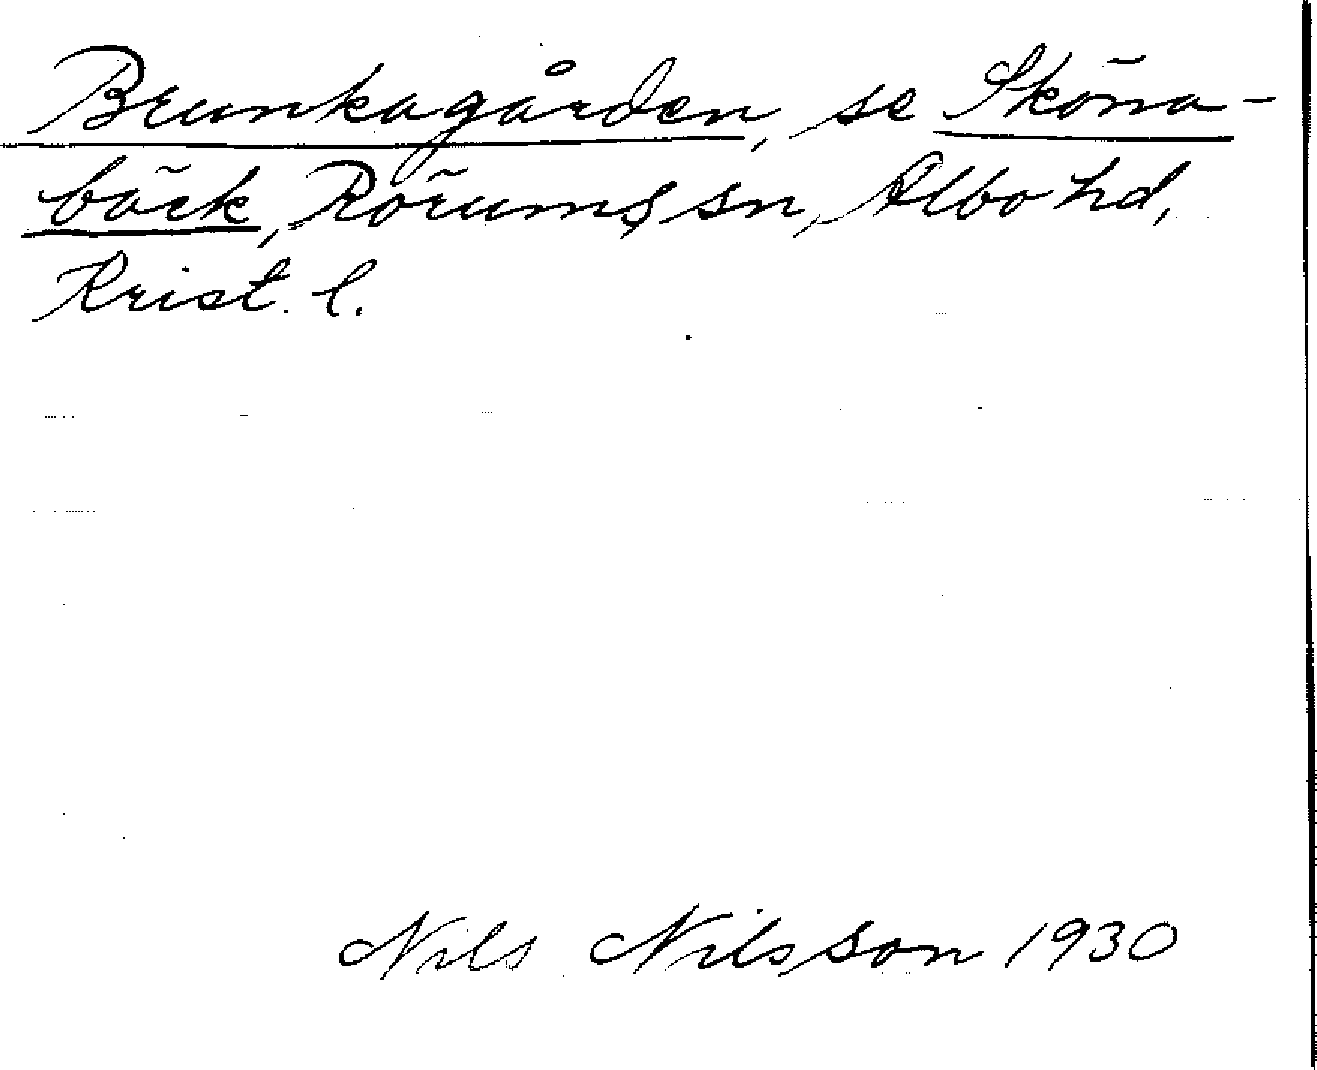 Brunkagården, se Sköna-
bäck, Rörums sn, Albo hd,
Krist. l.
Nils Nilsson 1930